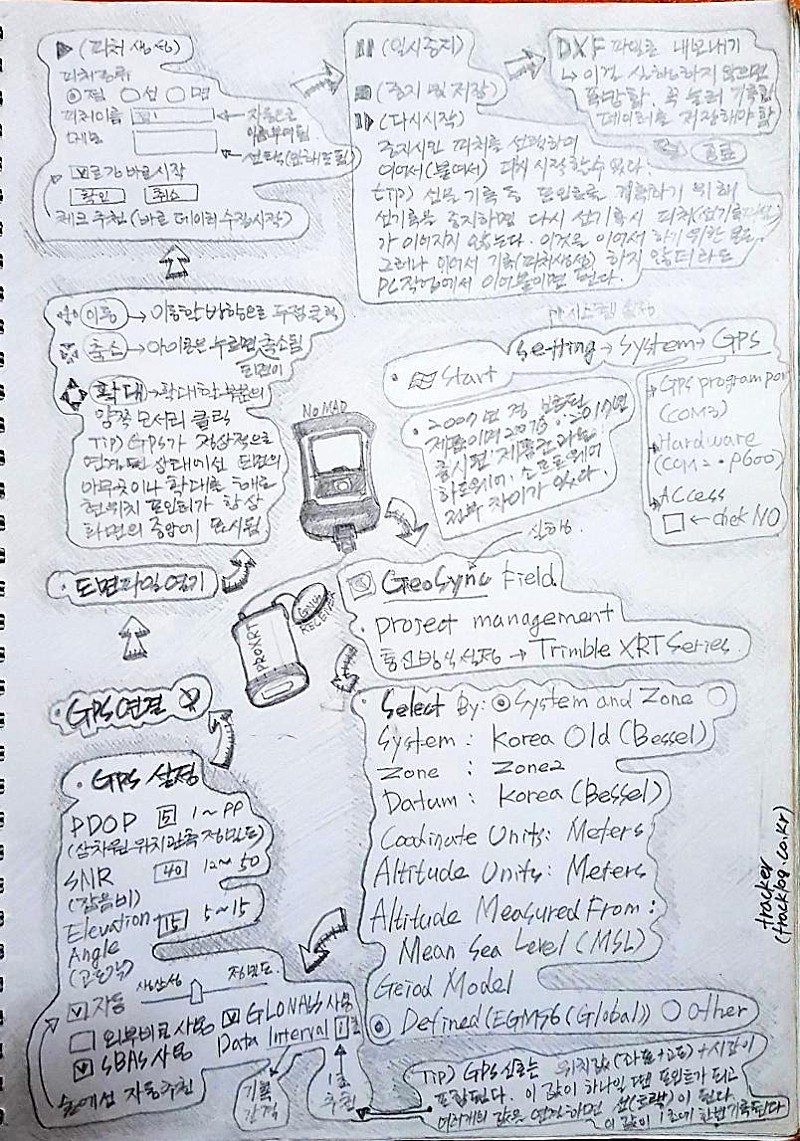 ▶ (피처 생성)
피처종류
◉점 ○선 ○면
피처이름
메모
자동으로
이름부여됨
선택(안해도됨)
☑로깅 바로시작
확인 취소
체크 추천 (바로 데이터 수집시작)
(일시중지)
(중지 및 저장)
(다시시작)
중지시킨 피처를 선택하여
이어서(붙여서) 다시 시작할수 있다.
tip) 선을 기록 중 포인트를 기록하기 위해
선기록을 중지하면 다시 선기록시 피처(선기록)
가 이어지지 않는다. 이것은 이어서 하기 위한
그러나 이어서 기록(피처생성) 하지 않더라도
PC작업에서 이어붙이면 된다.
DXF 파일로 내보내기
↳ 이걸 실행하지 않으면
꽝. 꼭 눌러 기록한
데이터를 저장해야 함
종료
이동 → 이동할 방향으로 두점 클릭
축소 → 아이콘을 누르면 축소됨
화면이
확대 → 확대할 부분의
양쪽 모서리 클릭
TIP) GPS가 정상적으로
연결된 상태에선 도면의
아무곳이나 확대를 해도
현위치 포인터가 항상
화면의 중앙에 표시됨
시스템 설정
Start
Setting → System → GPS
GPS program port
(COM3)
Hardware
(COM2 · 9600)
ACCess
□ ← chek NO
2007년 경 보급된
제품이며 2007년 ... 2017년
출시된 제품간 과는
하드웨어, 소프트웨어
전부 차이가 있다.
NOMAD
PROXRT
GNSS
RECEIVER
• 도면파일열기
실행
GeoSync Field
• project management
통신방식설정 → Trimble XRT Series
• GPS연결
• Select By: ◉System and Zone ○
System : Korea Old (Bessel)
Zone : Zone2
Datum : Korea (Bessel)
Coodinate Units: Meters
Altitude Units: Meters
Altitude Measured From :
Mean Sea Level (MSL)
Geiod Model
◉ Defined (EGM96 (Global)) ○ Other
• GPS 설정
PDOP 5 1~99
(삼차원 위치관측 정밀도)
SNR 40 12~50
(잡음비)
Elevation 15 5~15
Angle
(고도각)
생산성 정밀도
☑ 자동
□ 외부비콘 사용
☑ SBAS 사용
숲에선 자동추천
☑ GLONASS 사용
Data Interval 1초
기록
간격
1초
추천
TIP) GPS신호는 위치값(좌표+고도)+시간이
포함된다. 이 값이 하나일 땐 포인트가 되고
여러개의 값을 연결하면 선(트랙)이 된다.
이 값이 1초에 한번기록된다
tracker
(tracklog.co.kr)